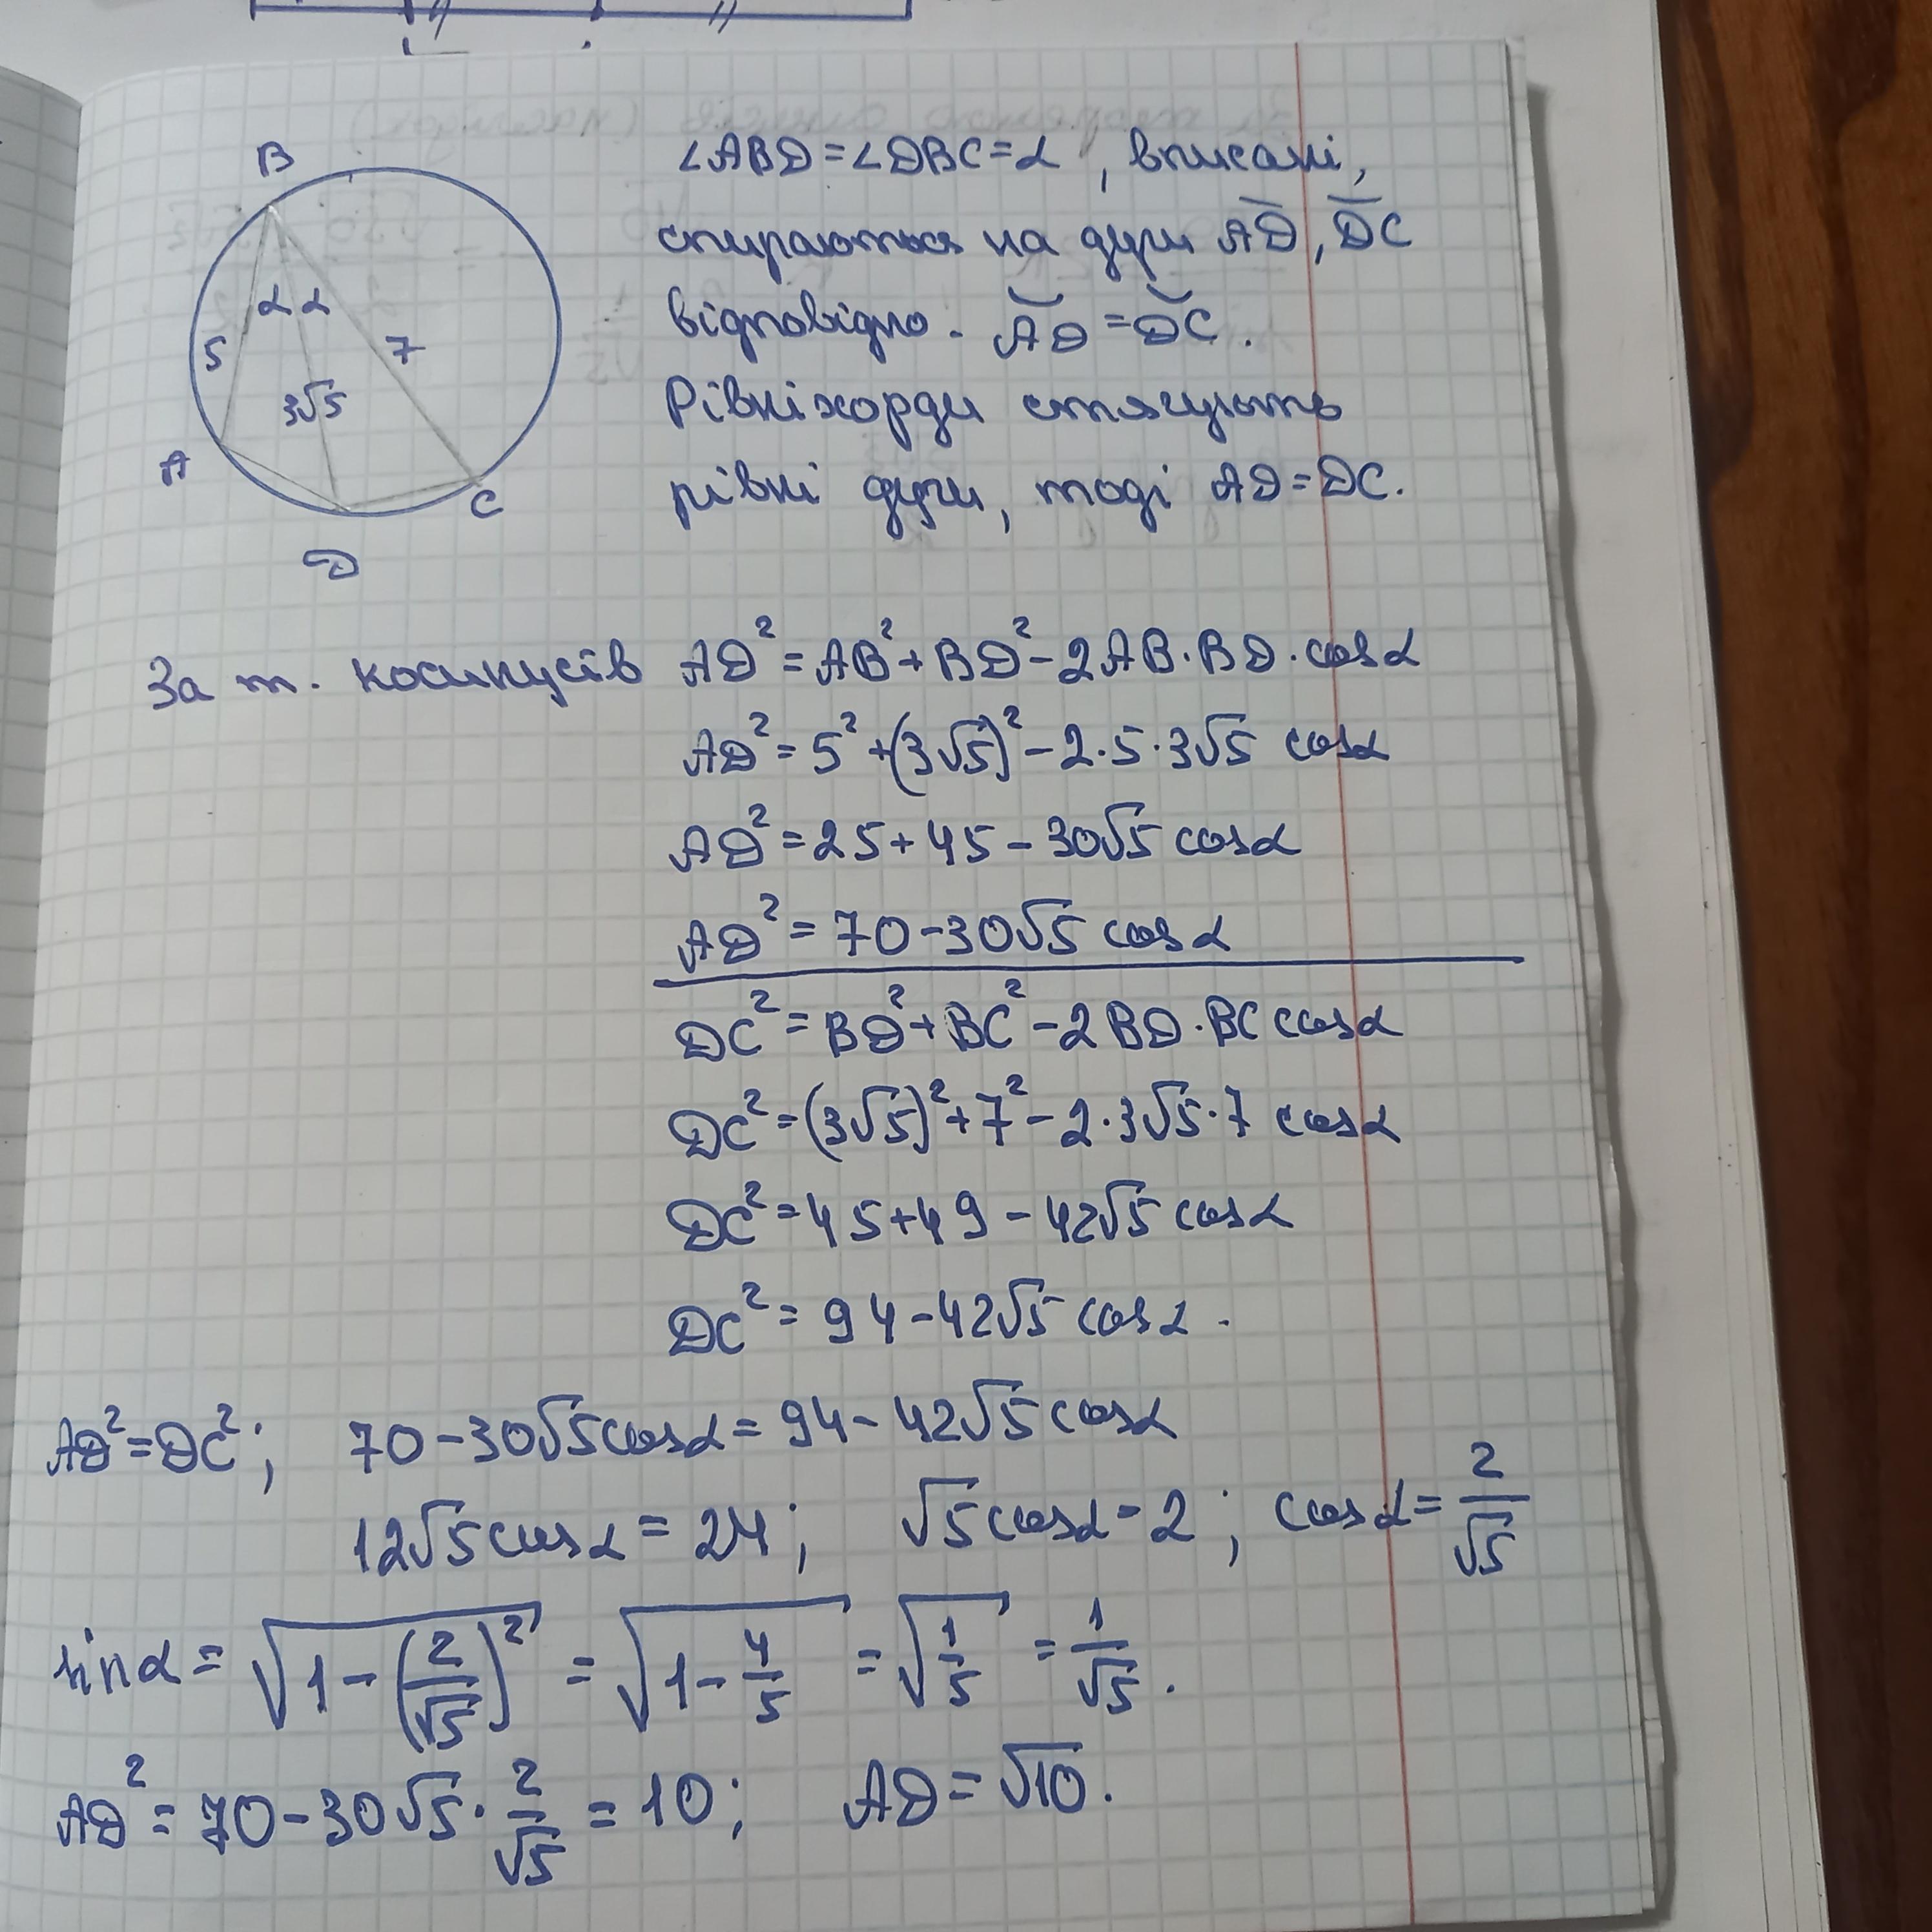 B
α α
5
7
3√5
A
C
D
∠ABD=∠DBC=α, вписані,
спираються на дуги A͡D, D͡C
відповідно. A͡D=D͡C.
Рівні хорди стягують
рівні дуги, тоді AD=DC.
За т. косинусів AD²=AB²+BD²-2AB·BD·cosα
AD²=5²+(3√5)²-2·5·3√5 cosα
AD²=25+45-30√5 cosα
AD²=70-30√5 cosα
DC²=BD²+BC²-2BD·BC cosα
DC²=(3√5)²+7²-2·3√5·7 cosα
DC²=45+49-42√5 cosα
DC²=94-42√5 cosα.
AD²=DC²; 70-30√5cosα=94-42√5cosα
12√5cosα=24; √5cosα=2; cosα=2/√5
sinα=√(1-(2/√5)²)=√(1-4/5)=√(1/5)=1/√5.
AD²=70-30√5·2/√5=10; AD=√10.